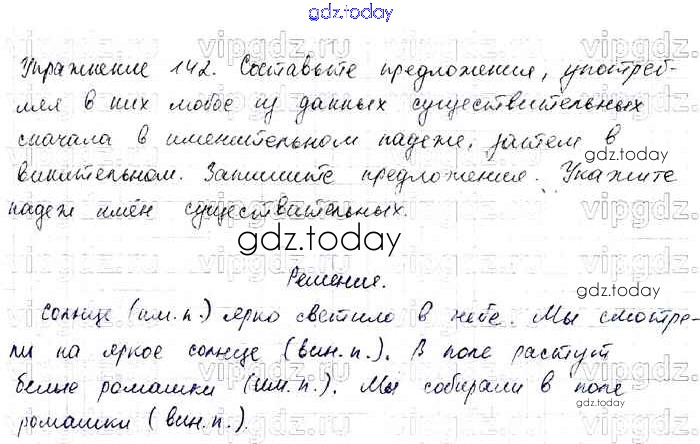 gdz.today
Упражнение 142. Составьте предложения, употреб-
ляя в них любое из данных существительных
сначала в именительном падеже, затем в
gdz.today
винительном. Запишите предложения. Укажите
падеж имён существительных.
gdz.today
Решение.
gdz.today
Солнце (им.п.) ярко светило в небе. Мы смотре-
ли на яркое солнце (вин.п.). В поле растут
белые ромашки (им.п.). Мы собирали в поле
gdz.today
ромашки (вин.п.).